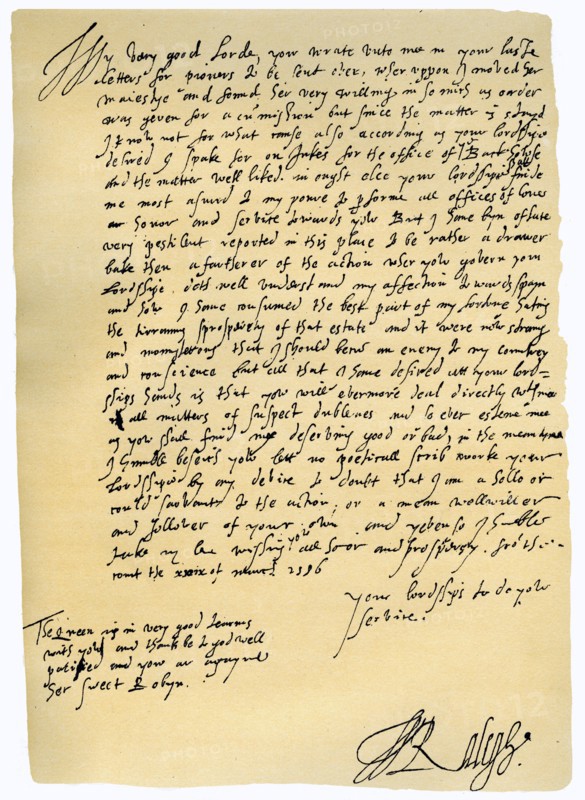 My very good Lorde, yow wrate unto mee in your laste
letters for pioners to be sent over, wheruppon I moved Her
maiestye and found Her very willing in so mich as order
was geven for a cummishion but since the matter is stayd
I know not for what cause also according as your lordships
desired I spake for on Jukes for the office of
and the matter well liked. in ought elce your lordships shall finde
me most asured to my poure to performe all offices of love
honor and service towards yow But I have byn of late
very pestilent reported in this place to be rather a drawer
bake then a fartherer of the action wher yow govern your
lordshipe doth well understand my affection towards spayn
and how I have consumed the best part of my fortune hating
the tirranus sprosperety of that estate and it were now strang
and monsterous that I should becum an enemy to my countrey
and conscience but all that I have desired att your lord=
ships hands is that yow will evermore deal directly with mee
all matters of suspect dublenes and so ever esteme mee
as yow shall find mee deserving good or bad, in the mean tyme
I humble beseich yow lett no poeticall scrib worke your
lordshipe by any device to doubt that I am a hollo or
could sarvant to the action, or a mean wellwiller
and follower of your own and yeven so I humble
take my leve wishing yow all honor and prosperety. from the
court the xxix of march 1586
Your lordships to do yow
service.
The Queen is in very good tearms
with yow and thanks be to god well
pacified and yow ar agayne
Her sweet Robyn.
W Ralegh.
PHOTO12
PHOTO12